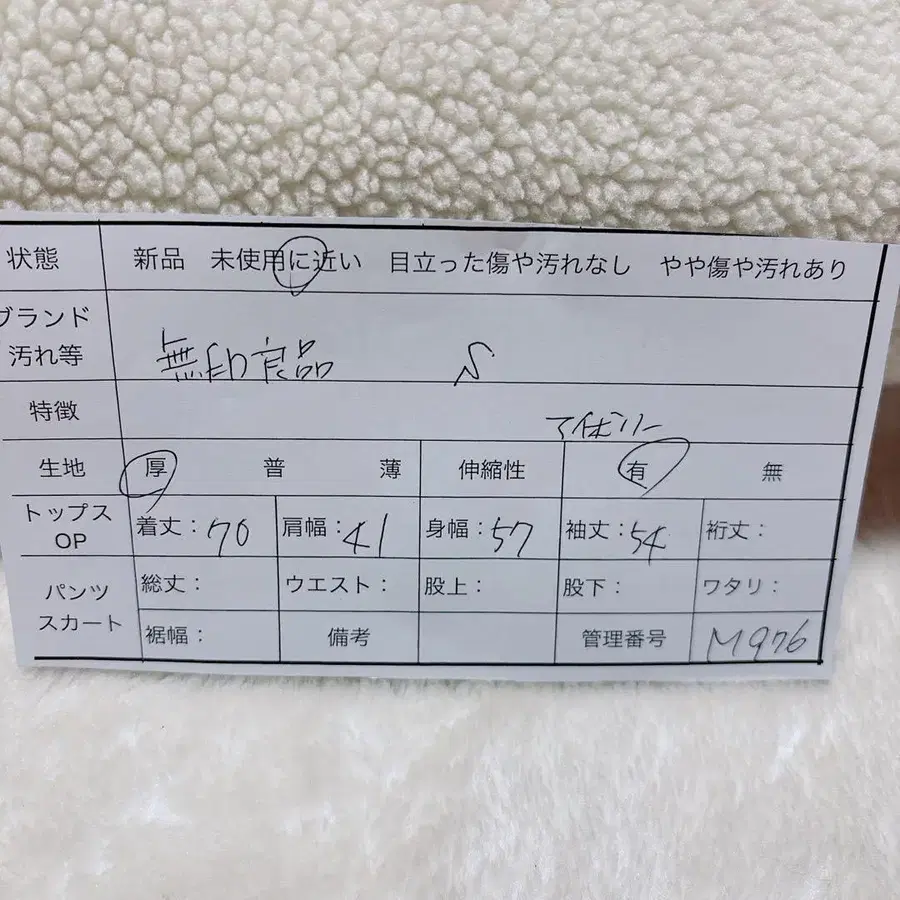 状態 新品 未使用に近い 目立った傷や汚れなし やや傷や汚れあり
ブランド
汚れ等 無印良品 S
特徴 アイボリー
生地 厚 普 薄 伸縮性 有 無
トップス
OP 着丈：70 肩幅：41 身幅：57 袖丈：54 裄丈：
パンツ
スカート 総丈： ウエスト： 股上： 股下： ワタリ：
裾幅： 備考 管理番号 M976